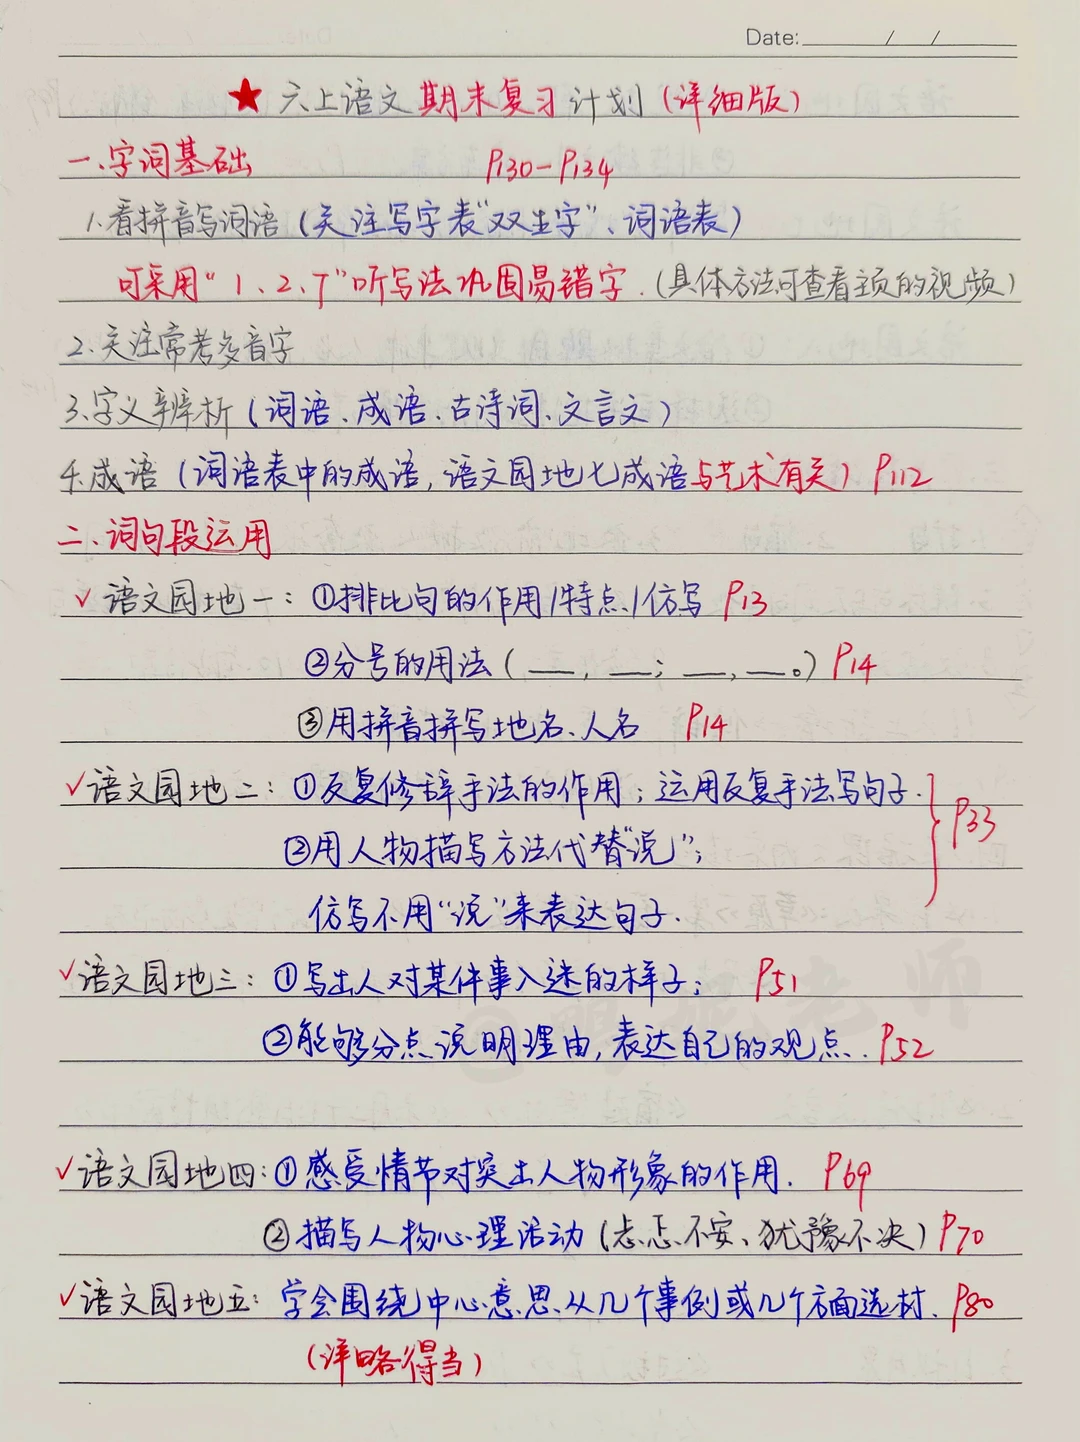 Date: / /
★ 六上语文期末复习计划(详细版)
一.字词基础 P130-P134
1.看拼音写词语(关注写字表"双生字"、词语表)
可采用"1、2、7"听写法巩固易错字.(具体方法可查看主页的视频)
2.关注常考多音字
3.字义辨析(词语、成语、古诗词、文言文)
4.成语(词语表中的成语,语文园地七成语与艺术有关)P112
二.词句段运用
✓ 语文园地一: ①排比句的作用/特点/仿写 P13
②分号的用法(__,__;__,__。)P14
③用拼音拼写地名、人名 P14
✓语文园地二: ①反复修辞手法的作用;运用反复手法写句子. P33
②用人物描写方法代替"说";
仿写不用"说"来表达句子.
✓语文园地三: ①写出人对某件事入迷的样子; P51
②能够分点说明理由,表达自己的观点. P52
✓语文园地四:①感受情节对突出人物形象的作用. P69
②描写人物心理活动(忐忑不安、犹豫不决)P70
✓语文园地五: 学会围绕中心意思从几个事例或几个方面选材. P80
(详略得当)